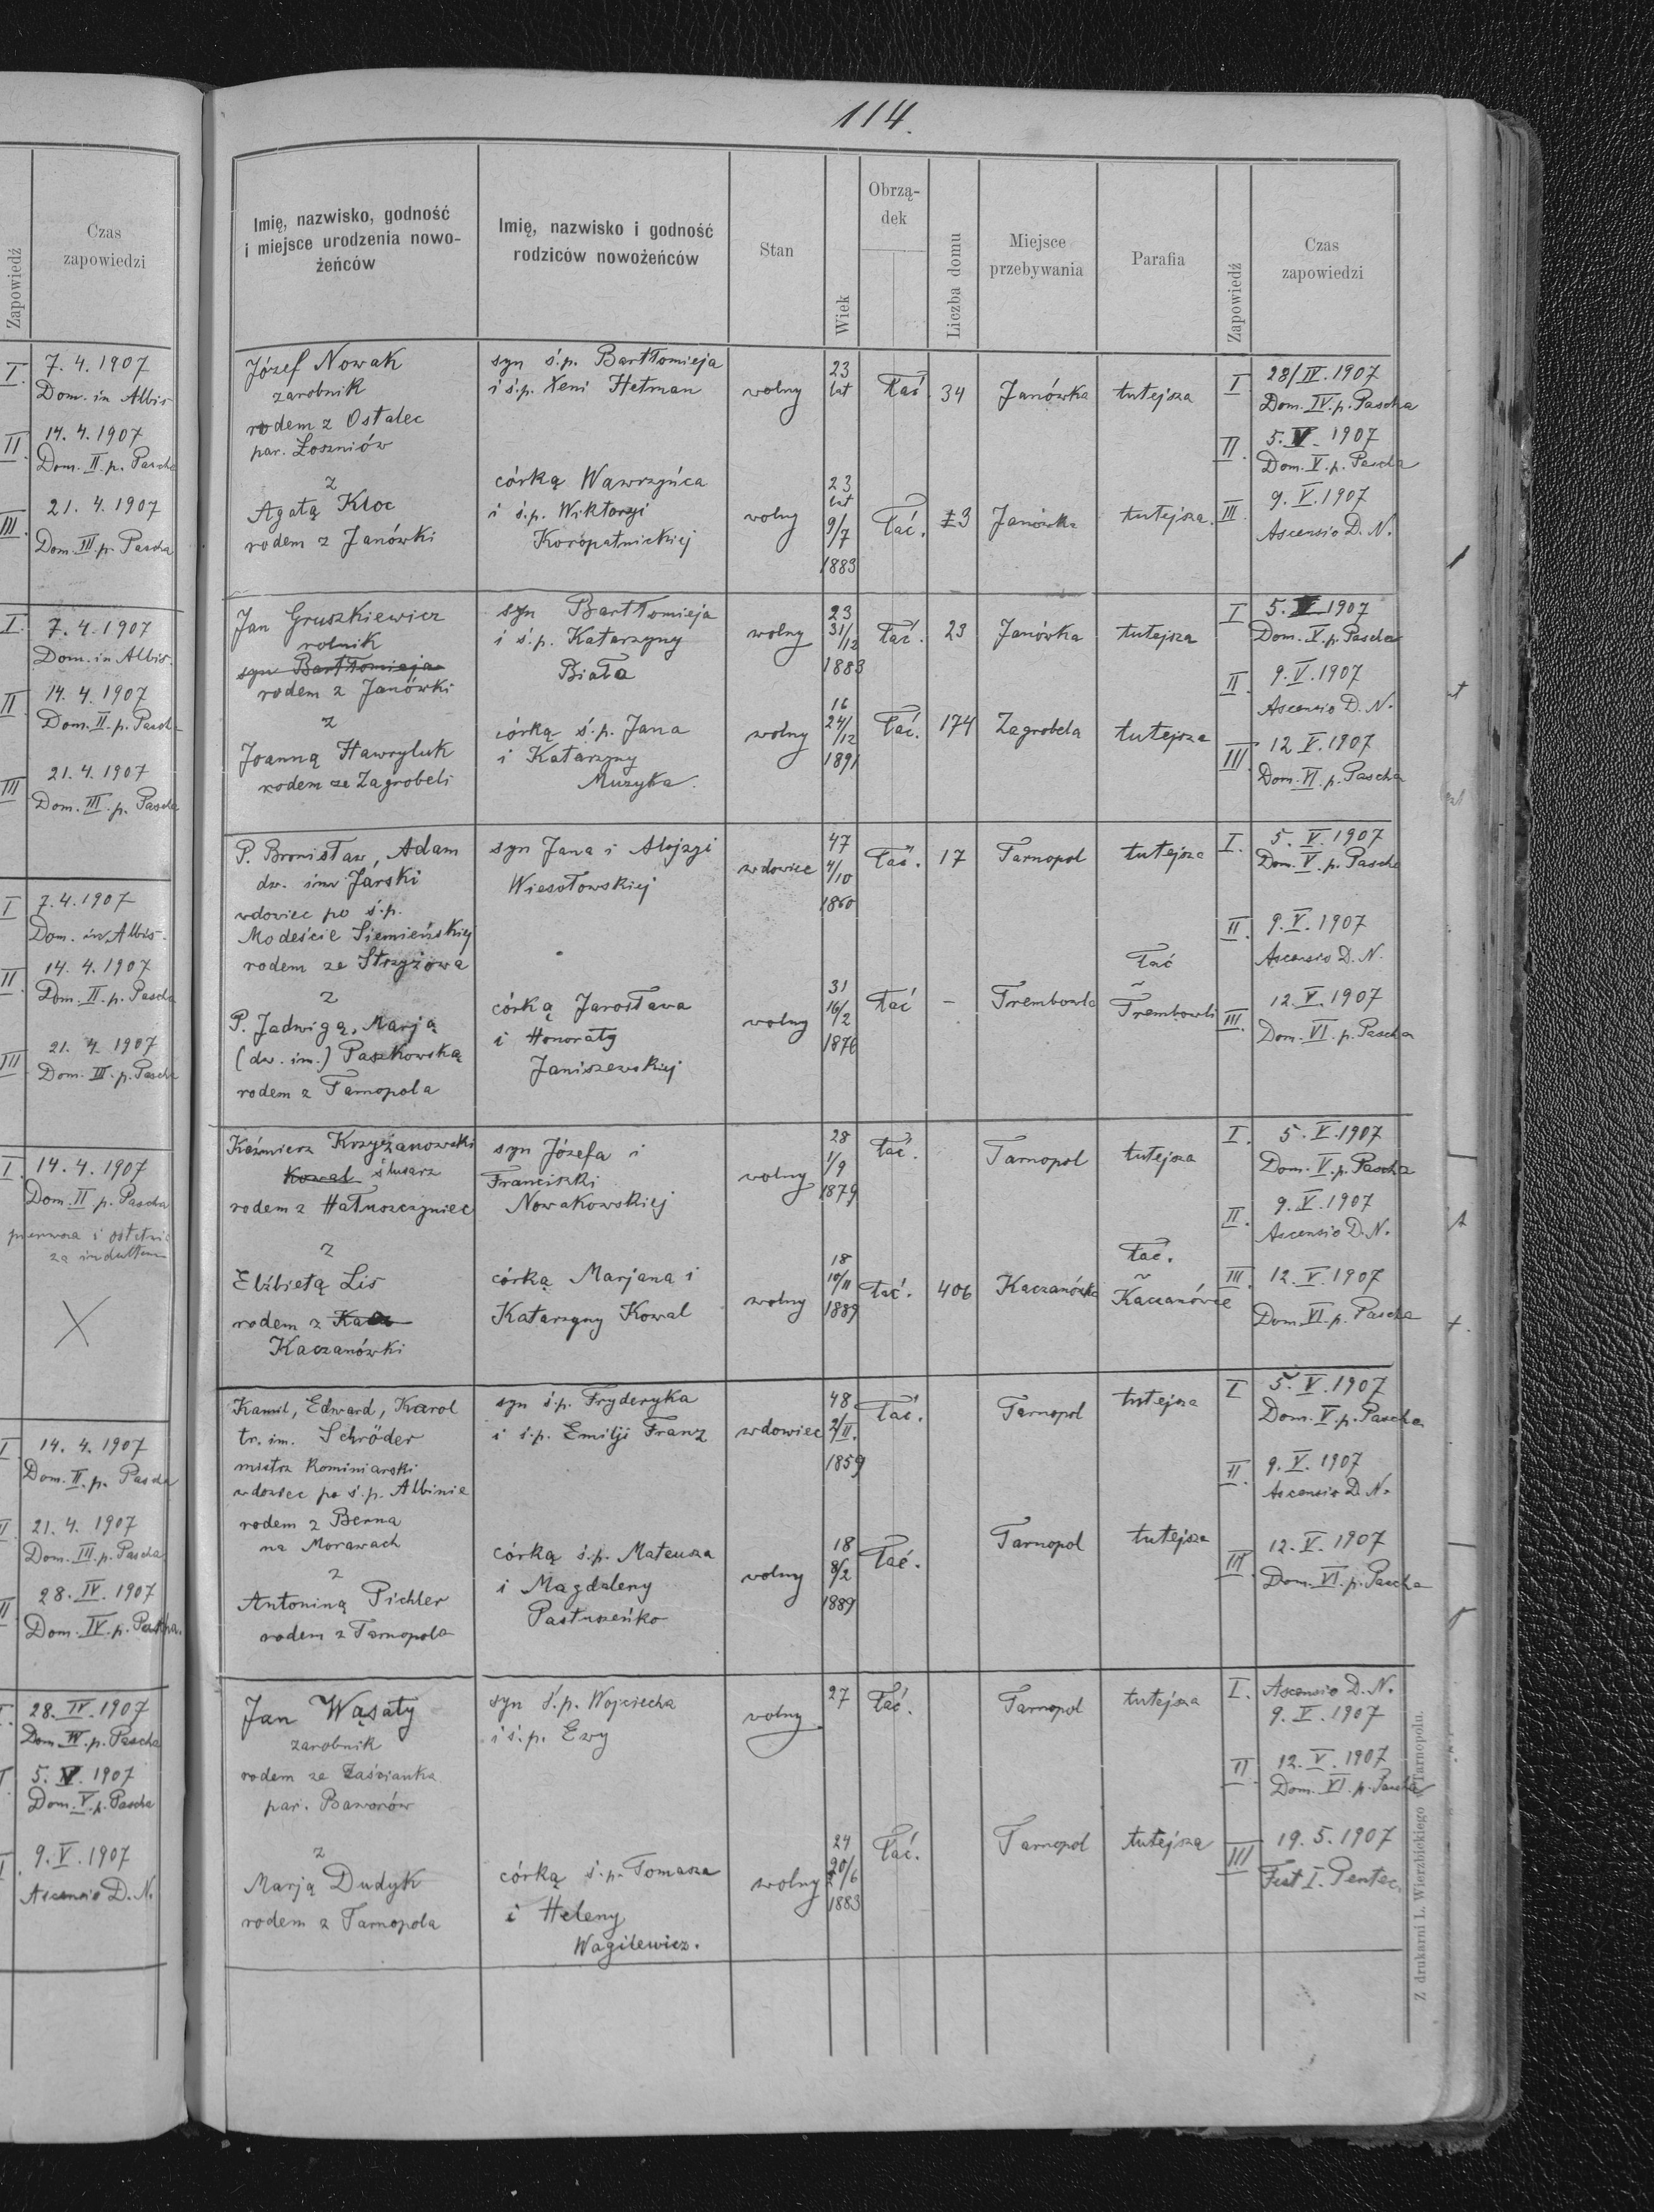 Zapowiedź
Czas
zapowiedzi
I. 7. 4. 1907
Dom. in Albis
II. 14. 4. 1907
Dom. II. p. Pascha
III. 21. 4. 1907
Dom. III. p. Pascha
I. 7. 4. 1907
Dom. in Albis.
II 14. 4. 1907
Dom. II. p. Pasch
III 21. 4. 1907
Dom. III. p. Pascha
I 7. 4. 1907
Dom. in Albis.
II 14. 4. 1907
Dom. II. p. Pascha
III 21. 4. 1907
Dom. III. p. Pascha
I. 14. 4. 1907
Dom. II p. Pascha
pierwsza i ostatnia
za indultem
I 14. 4. 1907
Dom. II. p. Pascha
II 21. 4. 1907
Dom. III. p. Pascha
28. IV. 1907
Dom. IV. p. Pascha.
28. IV. 1907
Dom. IV. p. Pascha
5. V. 1907
Dom. V. p. Pascha
9. V. 1907
Ascensio D. N.
114.
Imię, nazwisko, godność
i miejsce urodzenia nowo-
żeńców
Imię, nazwisko i godność
rodziców nowożeńców
Stan
Wiek
Obrzą-
dek
Liczba domu
Miejsce
przebywania
Parafia
Zapowiedź
Czas
zapowiedzi
Józef Nowak
zarobnik
rodem z Ostalec
par. Łoszniów
syn ś.p. Bartłomieja
i ś.p. Xeni Hetman
wolny
23
lat
łać.
34
Janówka
tutejsza
I 28/IV. 1907
Dom. IV. p. Pascha
II. 5. V. 1907
Dom. V. p. Pascha
z
Agatą Kloc
rodem z Janówki
córką Wawrzyńca
i ś.p. Wiktoryi
Koropatnickiej
wolny
23
lat
9/7
1883
łać.
3
Janówka
tutejsza.
III. 9. V. 1907
Ascensio D. N.
Jan Gruszkiewicz
rolnik
syn Bartłomieja
rodem z Janówki
syn Bartłomieja
i ś.p. Katarzyny
Biała
wolny
23
31/
/12
1883
łać.
23
Janówka
tutejsza
I 5. V. 1907
Dom. V. p. Pascha
II. 9. V. 1907
Ascensio D. N.
z
Joanną Hawryluk
rodem ze Zagrobeli
córką ś.p. Jana
i Katarzyny
Muzyka.
wolny
16
24/
/12
1891
łać.
174
Zagrobela
tutejsza
III 12 V. 1907
Dom. VI. p. Pascha
P. Bronisław, Adam
dw. imn Jarski
wdowiec po ś.p.
Modeście Siemieńskiej
rodem ze Strzyżowa
syn Jana i Alojzyi
Wiesołowskiej
wdowiec
47
4/10
1860
łać.
17
Tarnopol
tutejsza
I. 5. V. 1907
Dom. V. p. Pascha
II. 9. V. 1907
Ascensio D. N.
z
P. Jadwigą, Marją
(dw. im.) Paszkowską
rodem z Tarnopola
córką Jarosława
i Honoraty
Janiszewskiej
wolny
31
16/2
1876
łać
-
Trembowla
łać
Trembowli
III. 12. V. 1907
Dom. VI. p. Pascha
Kaźmierz Krzyżanowski
Kowal ślusarz
rodem z Hałuszczyniec
syn Józefa i
Franciszki
Nowakowskiej
wolny
28
1/9
1879
łać.
Tarnopol
tutejsza
I. 5. V. 1907
Dom. V. p. Pascha
II. 9. V. 1907
Ascensio D. N.
z
Elżbietą Lis
rodem z
Kaczanówki
córką Marjana i
Katarzyny Kowal
wolny
18
10/11
1889
łać.
406
Kaczanówka
łać.
Kaczanówce
III. 12. V. 1907
Dom. VI. p. Pascha
Kamil, Edward, Karol
tr. im. Schröder
mistrz kominiarski
wdowiec po ś.p. Albinie
rodem z Berna
na Morawach
syn ś.p. Fryderyka
i ś.p. Emilji Franz
wdowiec
48
2/II.
1859
łać.
Tarnopol
tutejsza
I 5. V. 1907
Dom. V. p. Pascha
II. 9. V. 1907
Ascensio D. N.
z
Antoniną Pichler
rodem z Tarnopola
córką ś.p. Mateusza
i Magdaleny
Pastuszeńko
wolny
18
8/2
1889
łać.
Tarnopol
tutejsza
III. 12. V. 1907
Dom. VI. p. Pascha
Jan Wąsaty
zarobnik
rodem ze Zaścianka
par. Baworów
syn ś.p. Wojciecha
i ś.p. Ewy
wolny
27
łać.
Tarnopol
tutejsza
I. Ascensio D. N.
9. V. 1907
II 12. V. 1907
Dom. VI. p. Pascha
z
Marją Dudyk
rodem z Tarnopola
córką ś.p. Tomasza
i Heleny
Wagilewicz.
wolny
24
20/6
1883
łać.
Tarnopol
tutejsza
III 19. 5. 1907
Fest I. Pentec.
Z drukarni L. Wierzbickiego w Tarnopolu.